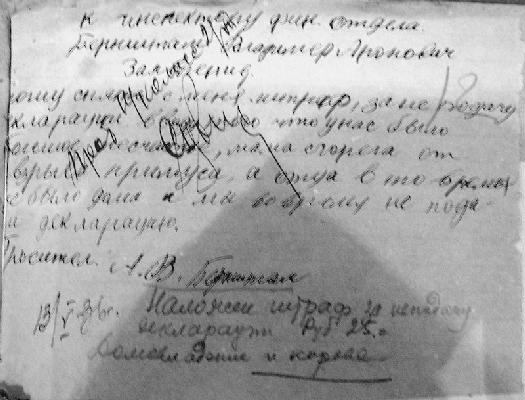 к инспектору фин отдела
Бернштам Владимер Аронович
Заявление
сне меня штраф, за не подачу
декларации что у нас было
мама сгорела от
взрыва примуса, а отца в то время
не было дома и мы по этому не пода-
ли декларацию.
Проситель. А. В. Бернштам
13/V 36г. Наложен штраф за неподачу
декларации Руб 25.=
Домовладение и корова